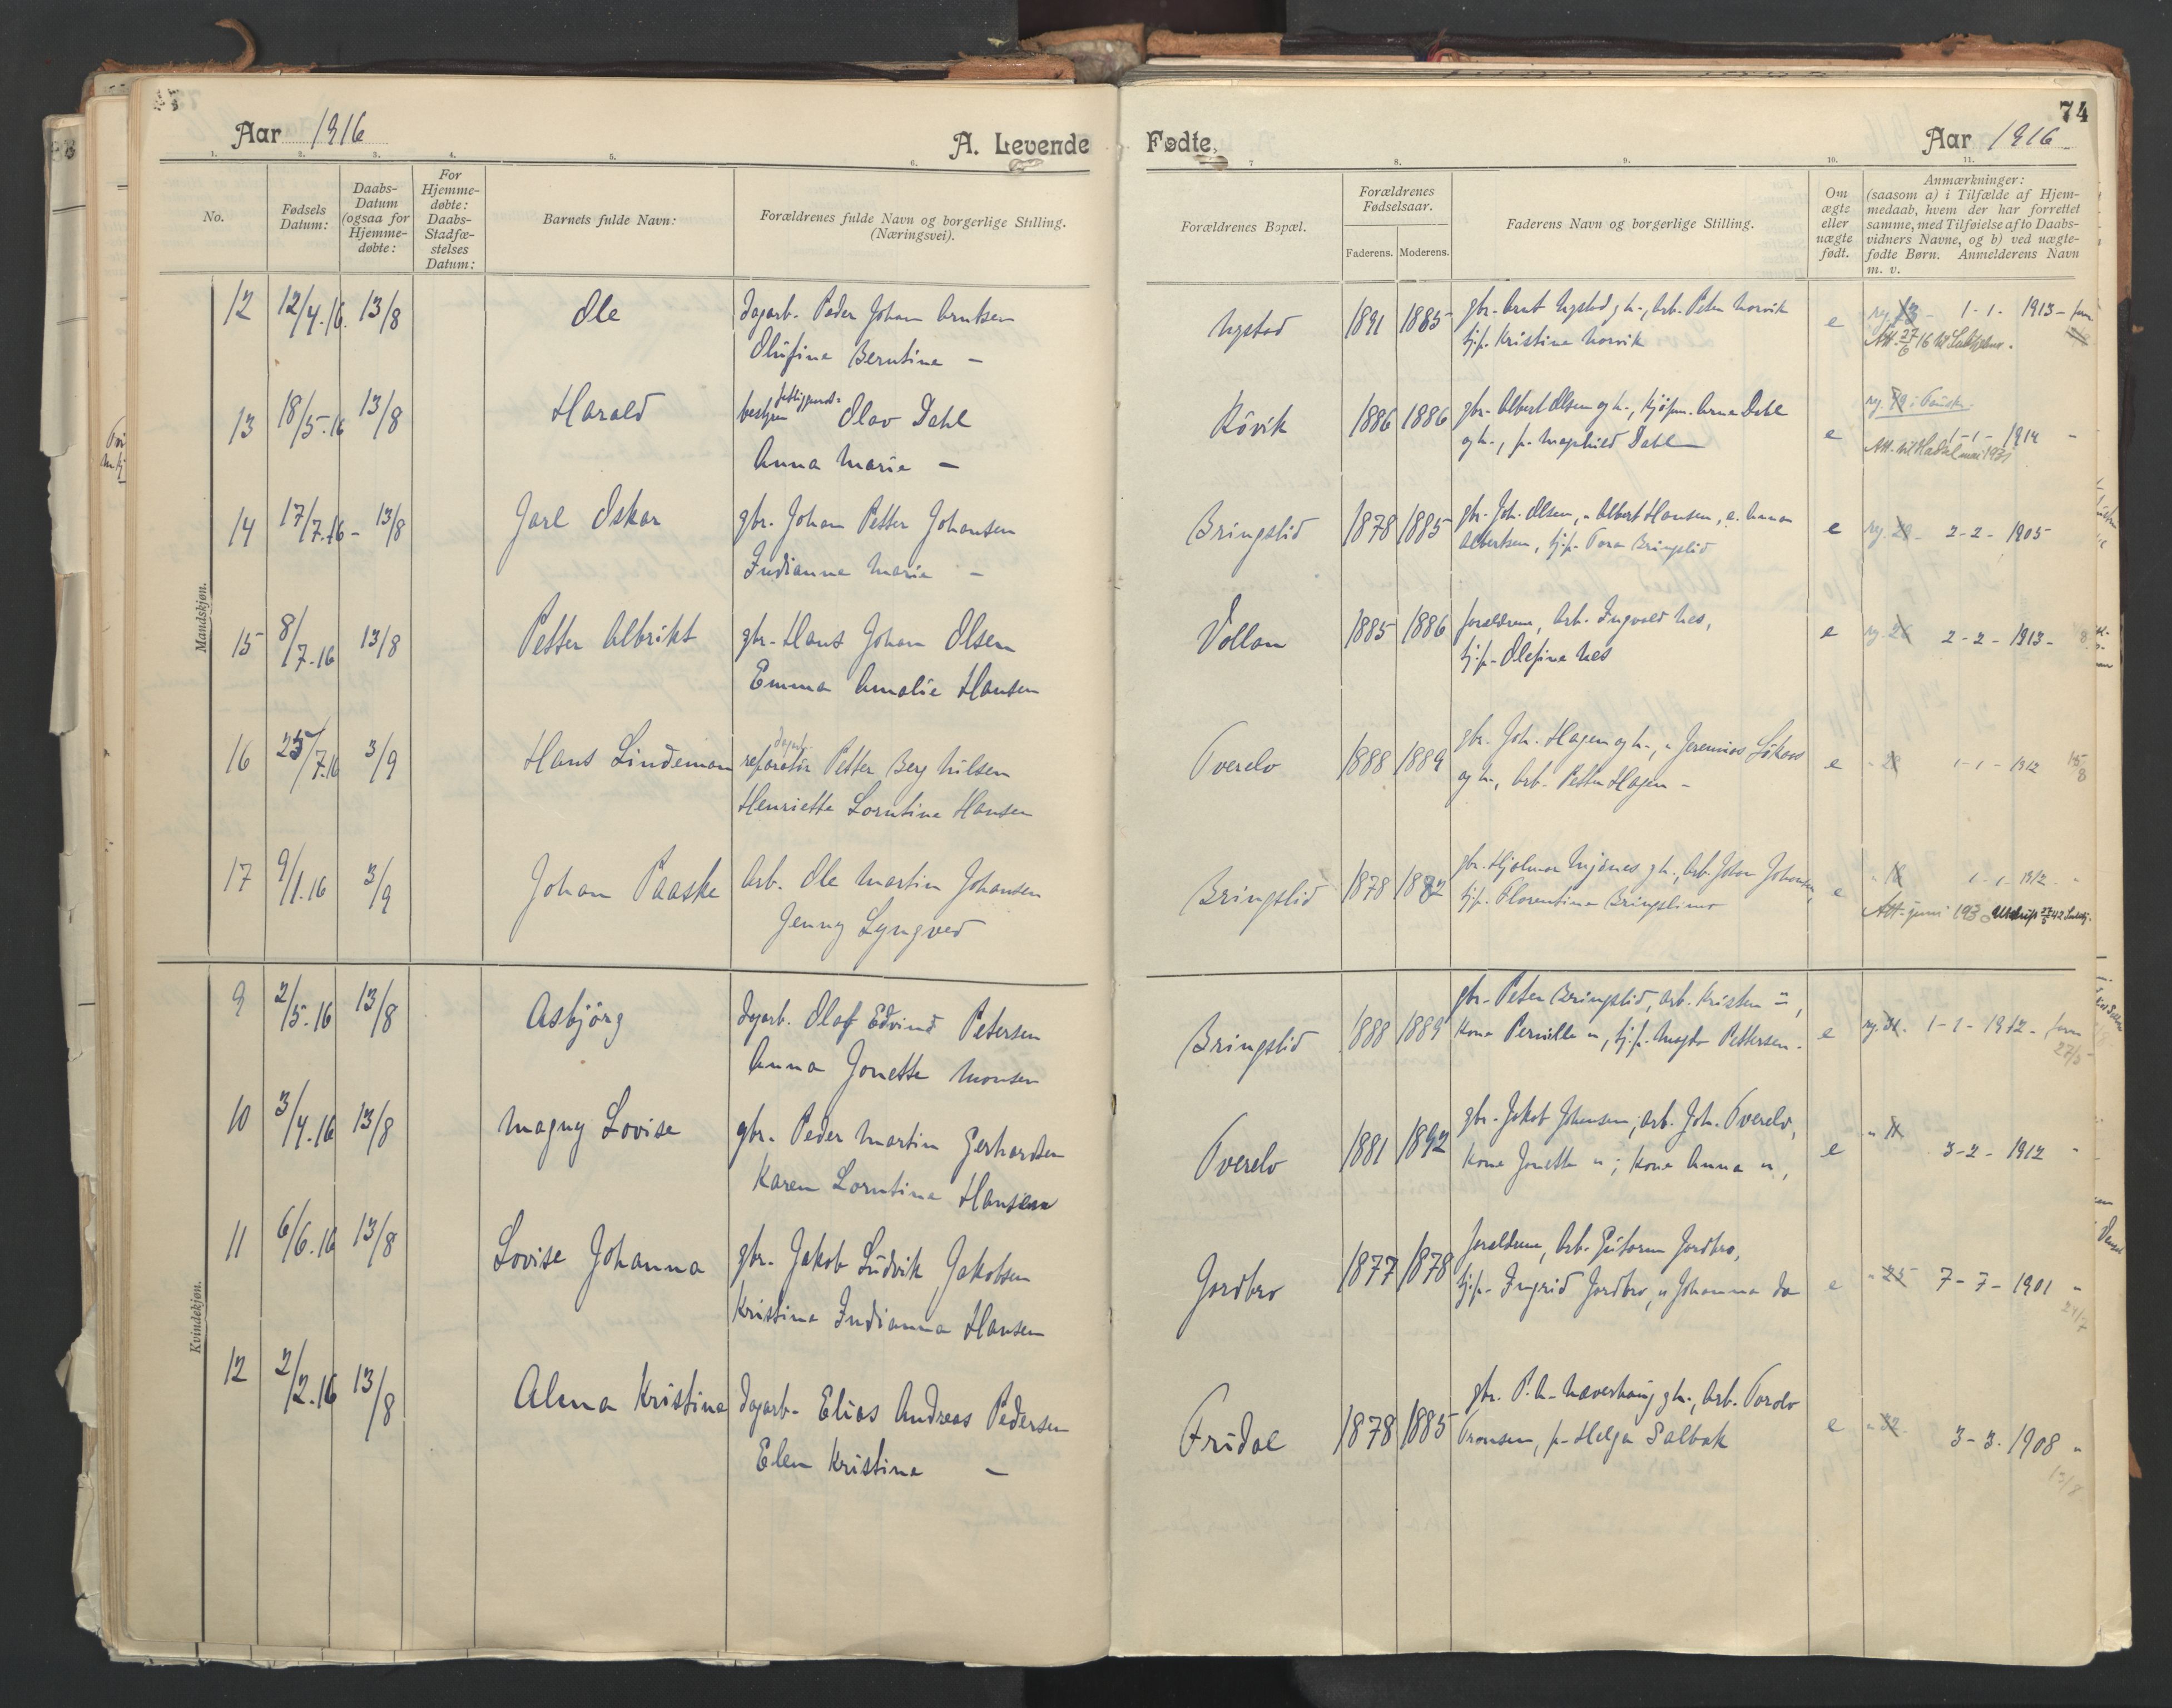 74
Aar 1916 A. Levende Fødte. Aar 1916
1. 2. 3. 4. 5. 6. 7 8. 9. 10. 11.
No.
Fødsels Datum:
Daabs-
Datum
(ogsaa for
Hjemme-
døbte:
For
Hjemme-
døbte:
Daabs-
Stadfæ-
stelses
Datum:
Barnets fulde Navn:
Forældrenes fulde Navn og borgerlige Stilling.
(Næringsvei).
Forældrenes Bopæl.
Forældrenes
Fødselsaar.
Faderens. Moderens.
Faderens Navn og borgerlige Stilling.
Om
ægte
eller
uægte
født.
Anmærkninger:
(saasom a) i Tilfælde af Hjem-
medaab, hvem der har forrettet
samme, med Tilføielse af to Daabs-
vidners Navne, og b) ved uægte-
fødte Børn. Anmelderens Navn
m. v.
Mandskjøn.
12 12/4.16. 13/8 Ole dagarb. Peder Johan Arntsen
Olufine Berntine -
Nystad 1891 1885 gbr. Arnt Nystad g h., Arb. Peter Norvik
tj.p. Kristine Norvik
e 1-1-1913-
13 18/5.16 13/8 Harald Olav Dahl
Anna Marie -
Røvik 1886 1886 gbr. Albert Olsen og h., Kjøpm. Arne Dahl
og h., p. Magnhild Dahl
e 1-1-1914 -
14 17/7.16 - 13/8 Jarl Oskar gbr. Johan Petter Johansen
Indianna Marie -
Bringslid 1878 1885 gbr. Joh. Olsen, " Albert Hansen, e. Anna
Albertsen, tj.p. Tora Bringslid
e 2-2-1905
15 8/7.16 13/8 Petter Albrikt gbr. Hans Johan Olsen
Emma Amalie Hansen
Vollan 1885 1886 forældrene, Arb. Ingvald Nes,
tj.p. Olefine Nes
e 2-2-1913-
16 25/7.16 3/9 Hans Lindeman reparatør Petter Berg Nilsen
Henriette Lorntine Hansen
Tverelv 1888 1889 gbr. Joh. Hagen og h., " Jeremias
og h., Arb. Petter Hagen -
e 1-1-1912 15/8
17 9/1.16 3/9 Johan Paaske Arb. Ole Martin Johansen
Jenny Lyngved
Bringslid 1878 gbr. Hjalmar g h., Arb. Johan Johansen,
tj.p. Florentine
e 1-1-1912
Att. juni 1930
Kvindekjøn.
9 2/5.16 13/8 Asbjörg dagarb. Olaf Edvind Petersen
Anna Jonette Monsen
Bringslid 1888 1889 gbr. Peter Bringslid, Arb. Kristen ",
Kone Pernille ", tj.p. Magda Pettersen.
e 1-1-1912-
27/5
10 3/4.16 13/8 Magny Lovise gbr. Peder Martin Gerhardsen
Karen Lorntine Hansen
Tverelv 1881 1892 gbr. Jakob Johansen, arb. Joh. Tverelv,
Kone Jonette "; Kone Anna ",
e 3-2-1912 "
11 6/6.16 13/8 Lovise Johanna gbr. Jakob Ludvik Jakobsen
Kristine Indianna Hansen
Jordbro 1877 1878 forældrene, Arb. Gutorm Jordbro,
tj.p. Ingrid Jordbro, " Johanna do
e 7-7-1901 "
24/7
12 2/2.16 13/8 Alma Kristine dagarb. Elias Andreas Pedersen
Elen Kristine -
Fridal 1878 1885 gbr. P. A. Naverhaug g h., Arb. Torolv
Tronsen, p. Helga Salbak
e 3-3-1908 "
13/8